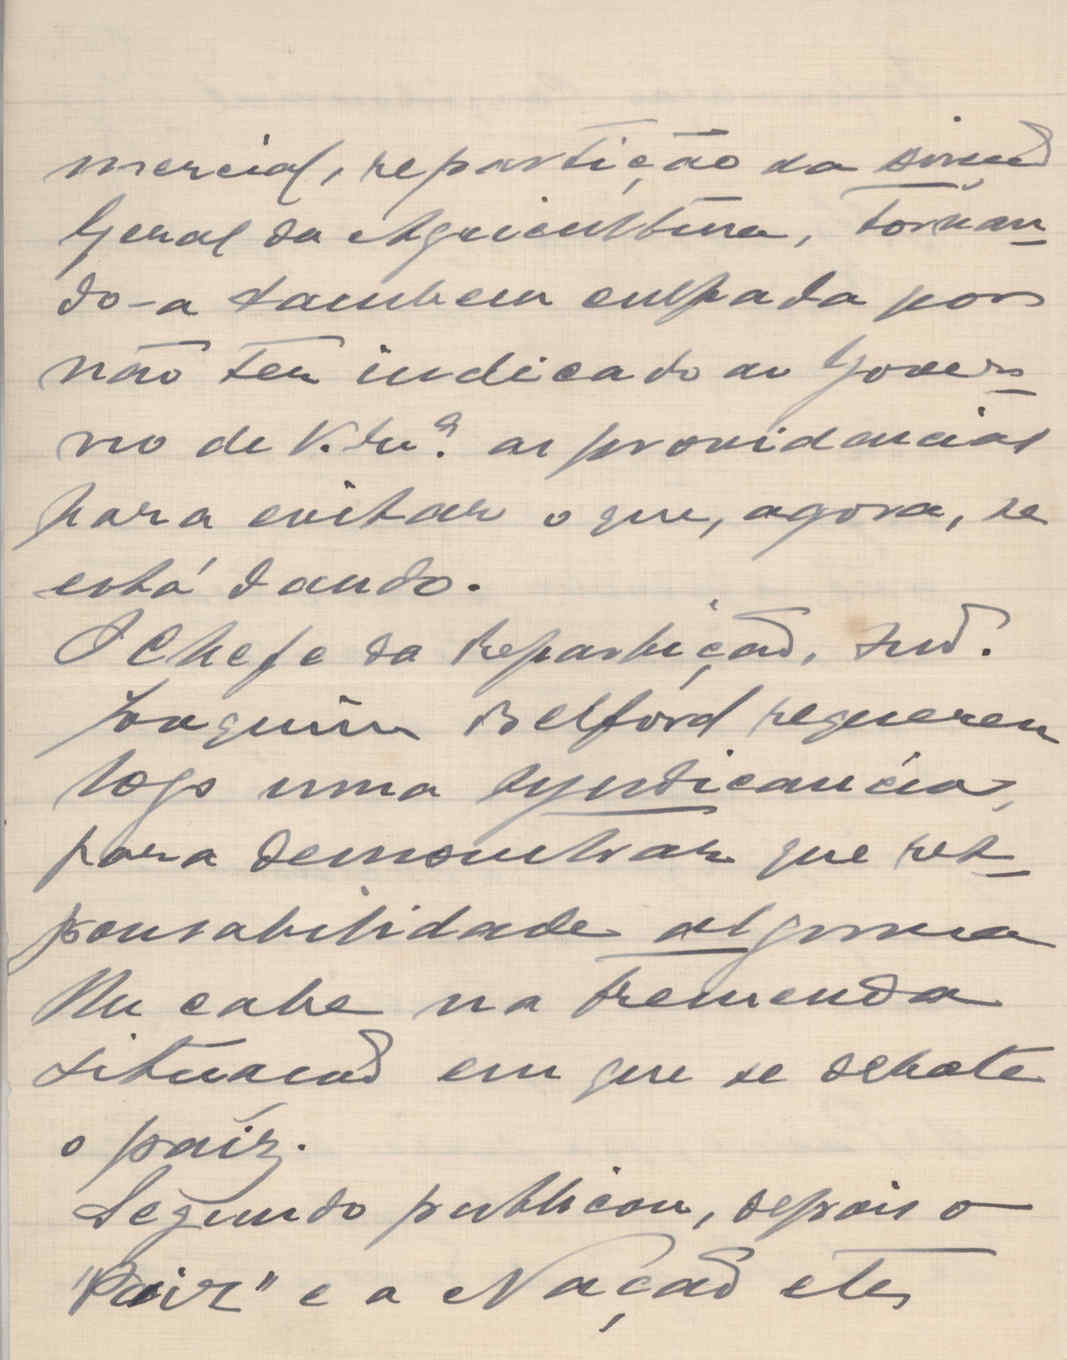 mercial, repartição da Direcção
Geral da Agricultura, tornan-
do-a tambem culpada por
não ter indicado ao Gover-
no de V. Ex.ª as providencias
para evitar o que, agora, se
está dando.
O Chefe da Repartição, Snr.
Joaquim Belford requereu
logo uma syndicancia,
para demonstrar que res-
ponsabilidade alguma
lhe cabe na tremenda
situação em que se debate
o paíz.
Segundo publicou, depois o
"Paiz" e a Nação